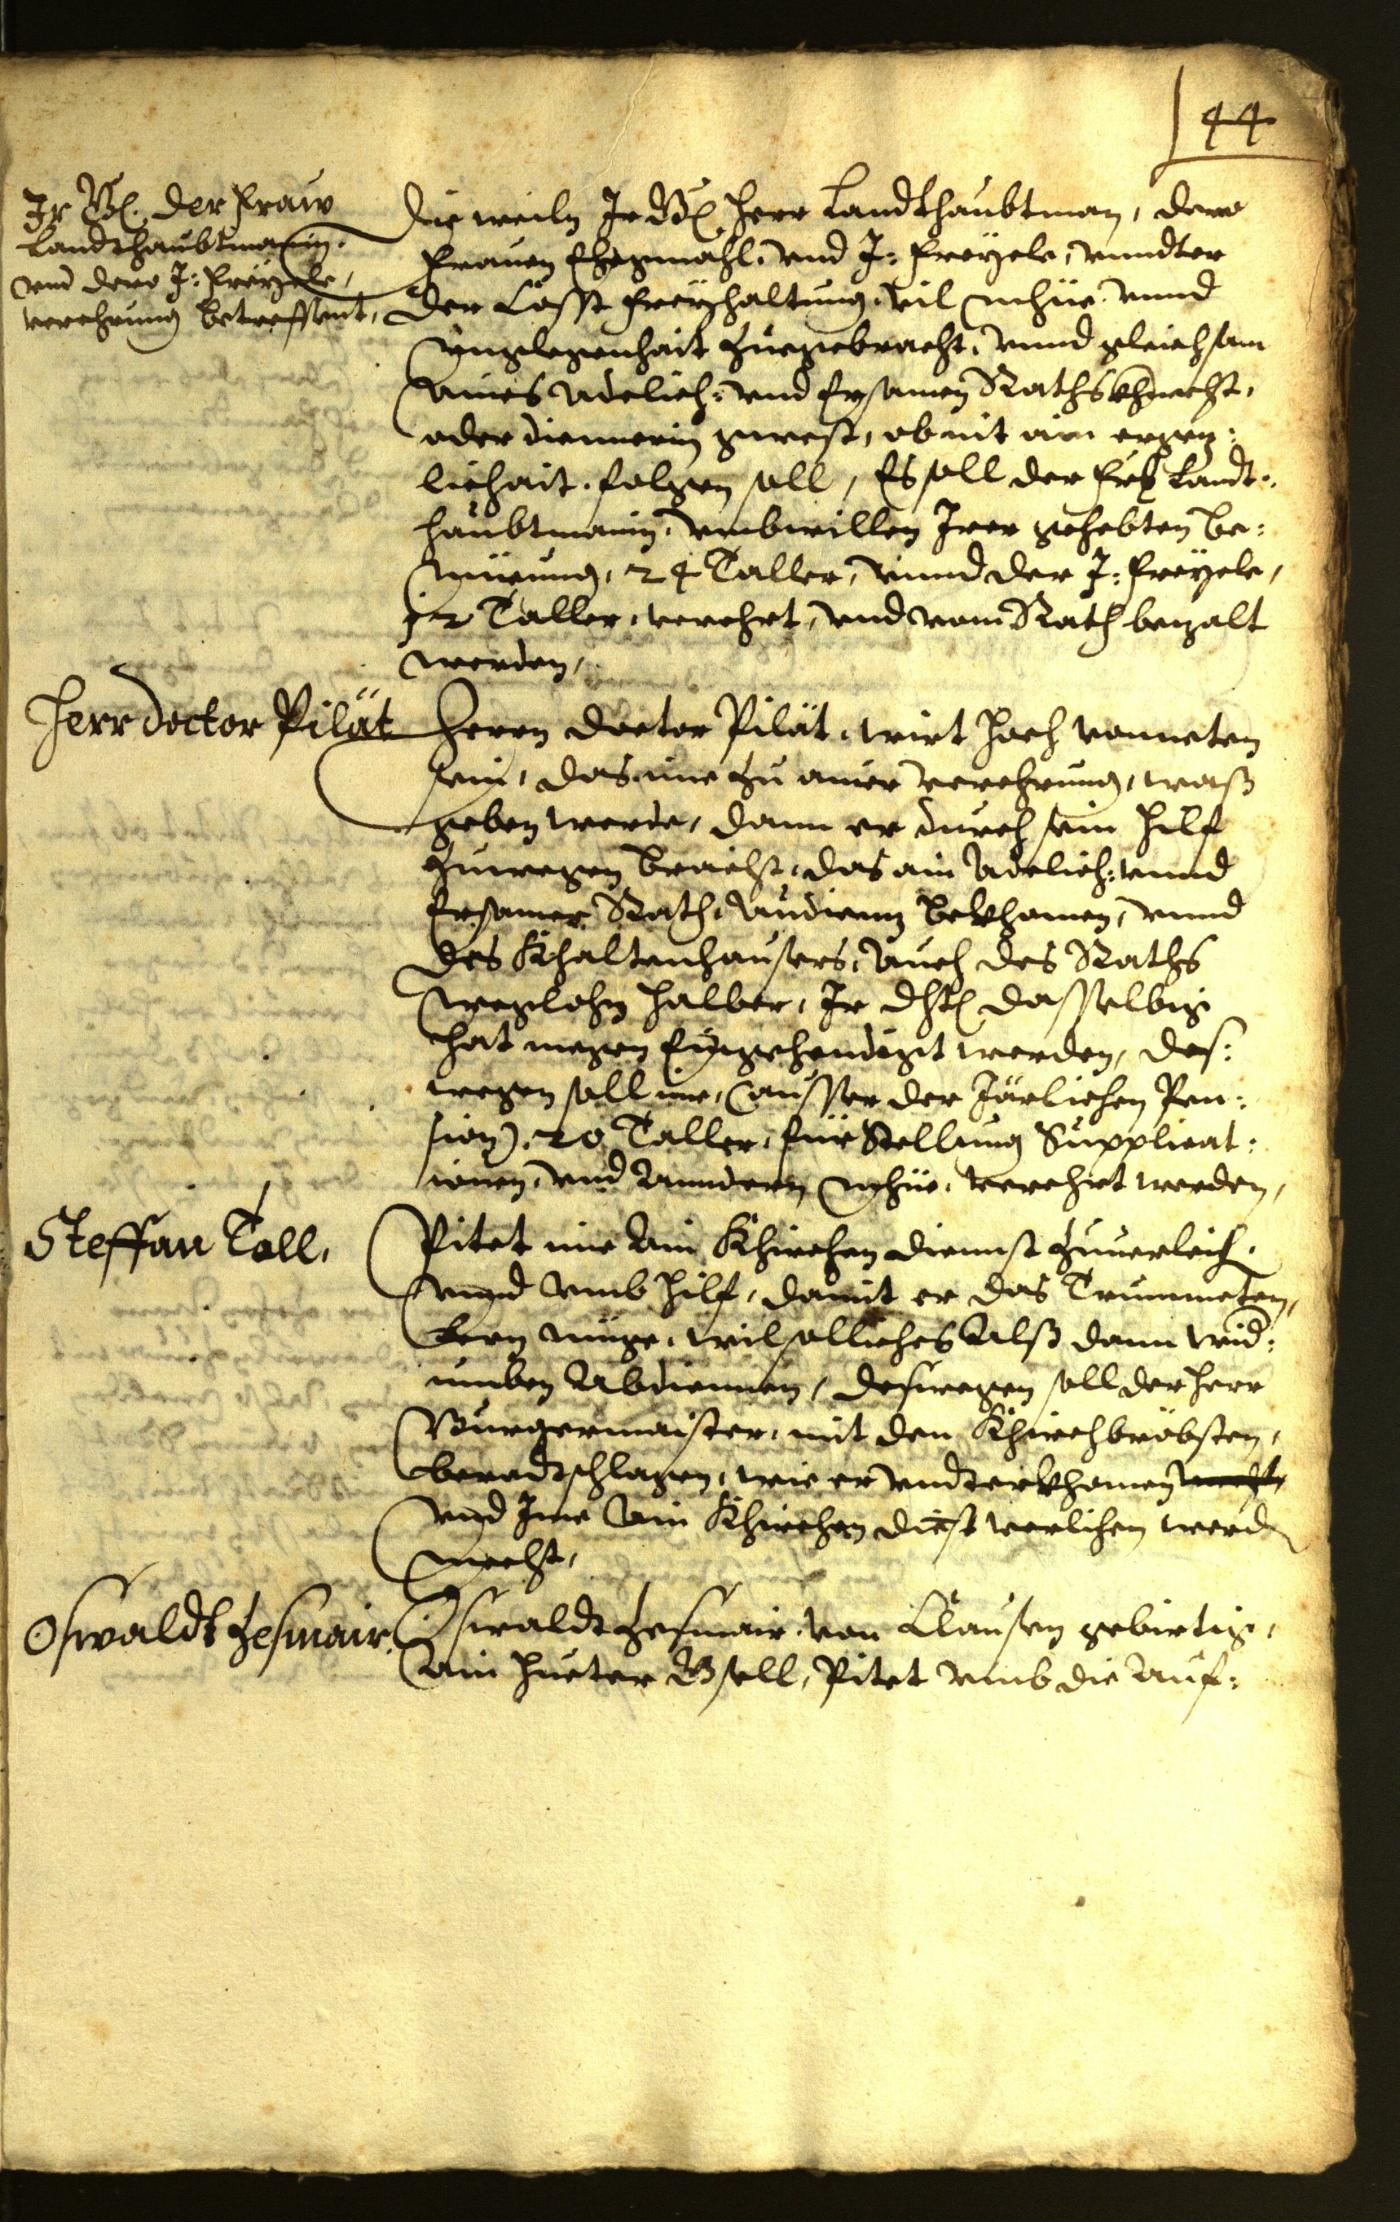 44
Ir Gn. der Fraw
Landthaubtmanin.
vnd dero J: Freyele,
verehrung betreffent,
Die weiln Ir Gn. Herr Landthaubtman, dero
Frauen Ehegmahl. vnd J: Freyele, vnndter
der Losst freyhaltung. vil mhüe. vnnd
vnglegenhait zuegebracht, vnnd gleichsam
aines Adelich: vnd Ersamen Raths khnecht,
oder diennerin gwest, ob nit ain ergez:
lichait. folgen soll, Es soll der Landt:
haubtmanin. vmbwillen Irer gehebten be:
müeung, 24 Taller, vnnd der J: Freyele,
12 Taller, verehrt, vnd vom Rath bezalt
werden,
Herr Doctor Pilät
Herrn Doctor Pilät, wirt hoch vonneten
sein, das ime zu ainer verehrung, waß
geben werde, dann er durch sein hilf
zuwegen bracht, das ain Adelich: vnnd
Ersamer Rath, Audienz bekhomen, vnnd
des Khaltenhausers, Auch des Raths
weglohn halber, Ir dht dasselbig
hat megen Eingehendigt werden, des:
wegen soll ime, (ausser der Järlichen Pen:
sion). 20 Taller, für Stellung Supplicat:
ionen, vnd Anndern mhüe, verehrt werden,
Steffan Toll,
Pitet ime Ain Khirchen diennst zuuerleich.
vnd vmb hilf, damit er das Trummeten,
lern müge, wil solliches Alß dann wid:
rumben Abdiennen, deswegen soll der Herr
Burgermaister, mit den Khirchbröbsten,
beradtschlagen, wie er vndterkhomen
vnd Ime Ain Khirchen dienst verlihen werd
mecht,
Oswaldt Zesmair.
Oswaldt Zesmair. von Clausen gebirtig,
Ain Hueter Gsell, Pitet vmb die Auf: